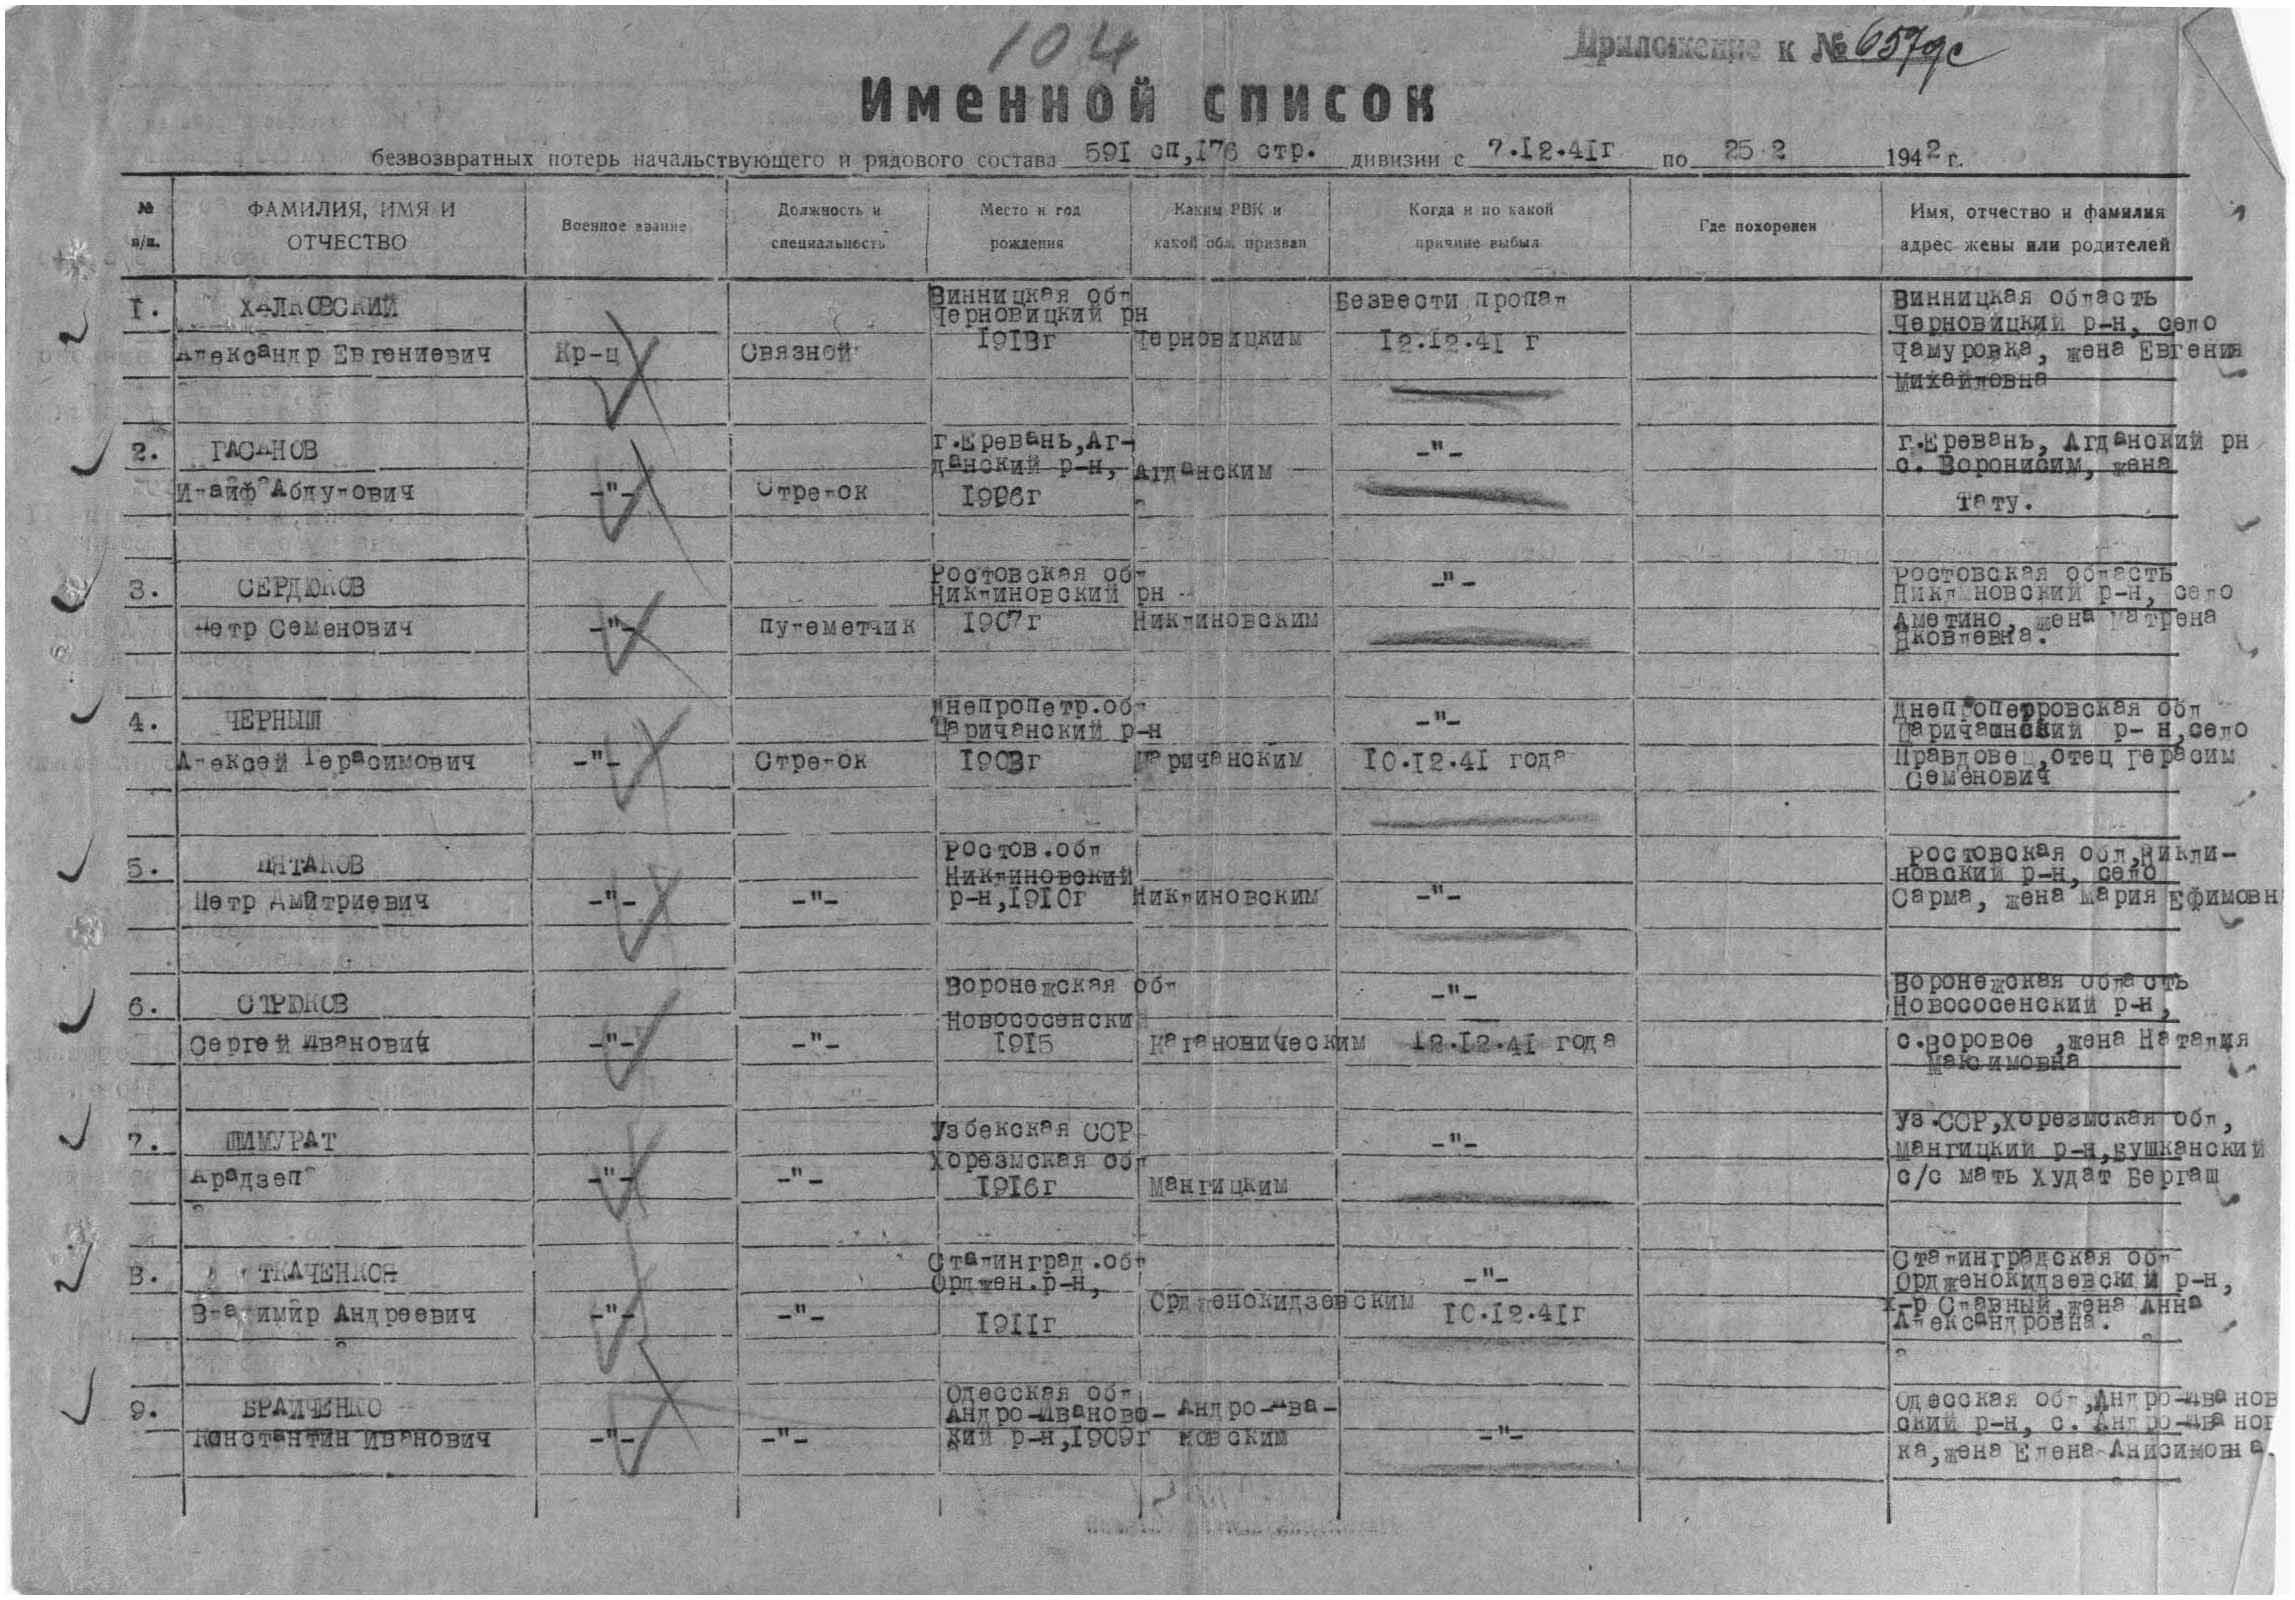 104
Приложение к № 657дс
Именной список
безвозвратных потерь начальствующего и рядового состава 591 сп,176 стр. дивизии с 7.12.41г по 25 2 1942 г.
№ п/п.
ФАМИЛИЯ, ИМЯ И ОТЧЕСТВО
Военное звание
Должность и специальность
Место и год рождения
Каким РВК и какой обл. призван
Когда и по какой причине выбыл
Где похоронен
Имя, отчество и фамилия адрес жены или родителей
1. ХАЛКОВСКИЙ Винницкая обл Безвести пропал Винницкая область
Черновицкий рн Черновицкий р-н, село
Александр Евгениевич Кр-ц Связной 1913г Черновицким 12.12.41 г Чамуровка, жена Евгения
Михайловна
2. ГАСАНОВ г.Еревань,Аг- -"- г.Еревань, Агданский рн
данский р-н, Агданским с. Воронисим, жена
Илайф Абдулович -"- Стрелок 1906г Тату.
3. СЕРДЮКОВ Ростовская обл -"- Ростовская область
Никлиновский рн Никлиновский р-н, село
Петр Семенович -"- Пулеметчик 1907г Никлиновским Аметино, жена Матрена
Яковлевна.
4. ЧЕРНЫШ Днепропетр.обл -"- Днепропетровская обл
Царичанский р-н Царичанский р-н,село
Алексей Герасимович -"- Стрелок 1903г Царичанским 10.12.41 года отец Герасим
Семенович
5. ПЯТАКОВ Ростов.обл Ростовская обл,Никли-
Никлиновский новский р-н, село
Петр Дмитриевич -"- -"- р-н,1910г Никлиновским -"- Сарма, жена Мария Ефимовн
6. СТРЮКОВ Воронежская обл -"- Воронежская область
Новососенски Новососенский р-н,
Сергей Иванович -"- -"- 1915 Кагановическим 12.12.41 года с.Воровое ,жена Наталия
Максимовна
7. ШИМУРАТ Узбекская ССР -"- Уз.ССР,Хорезмская обл,
Хорезмская обл Мангицкий р-н,Бушканский
Арадзеп -"- -"- 1916г Мангицким с/с мать Худат Бергаш
8. ТКАЧЕНКОЯ Сталинград.обл -"- Сталинградская обл
Орджен.р-н, Орджоникидзевский р-н,
Орджоникидзевским х-р Славный,жена Анна
Владимир Андреевич -"- -"- 1911г 10.12.41г Александровна.
9. БРАИЧЕНКО Одесская обл Одесская обл,Андро-Иванов
Андро-Иановс- Андро-Ива- ский р-н, с. Андро-Иванов
Константин Иванович -"- -"- кий р-н,1909г новским -"- ка,жена Елена Анисимовна.